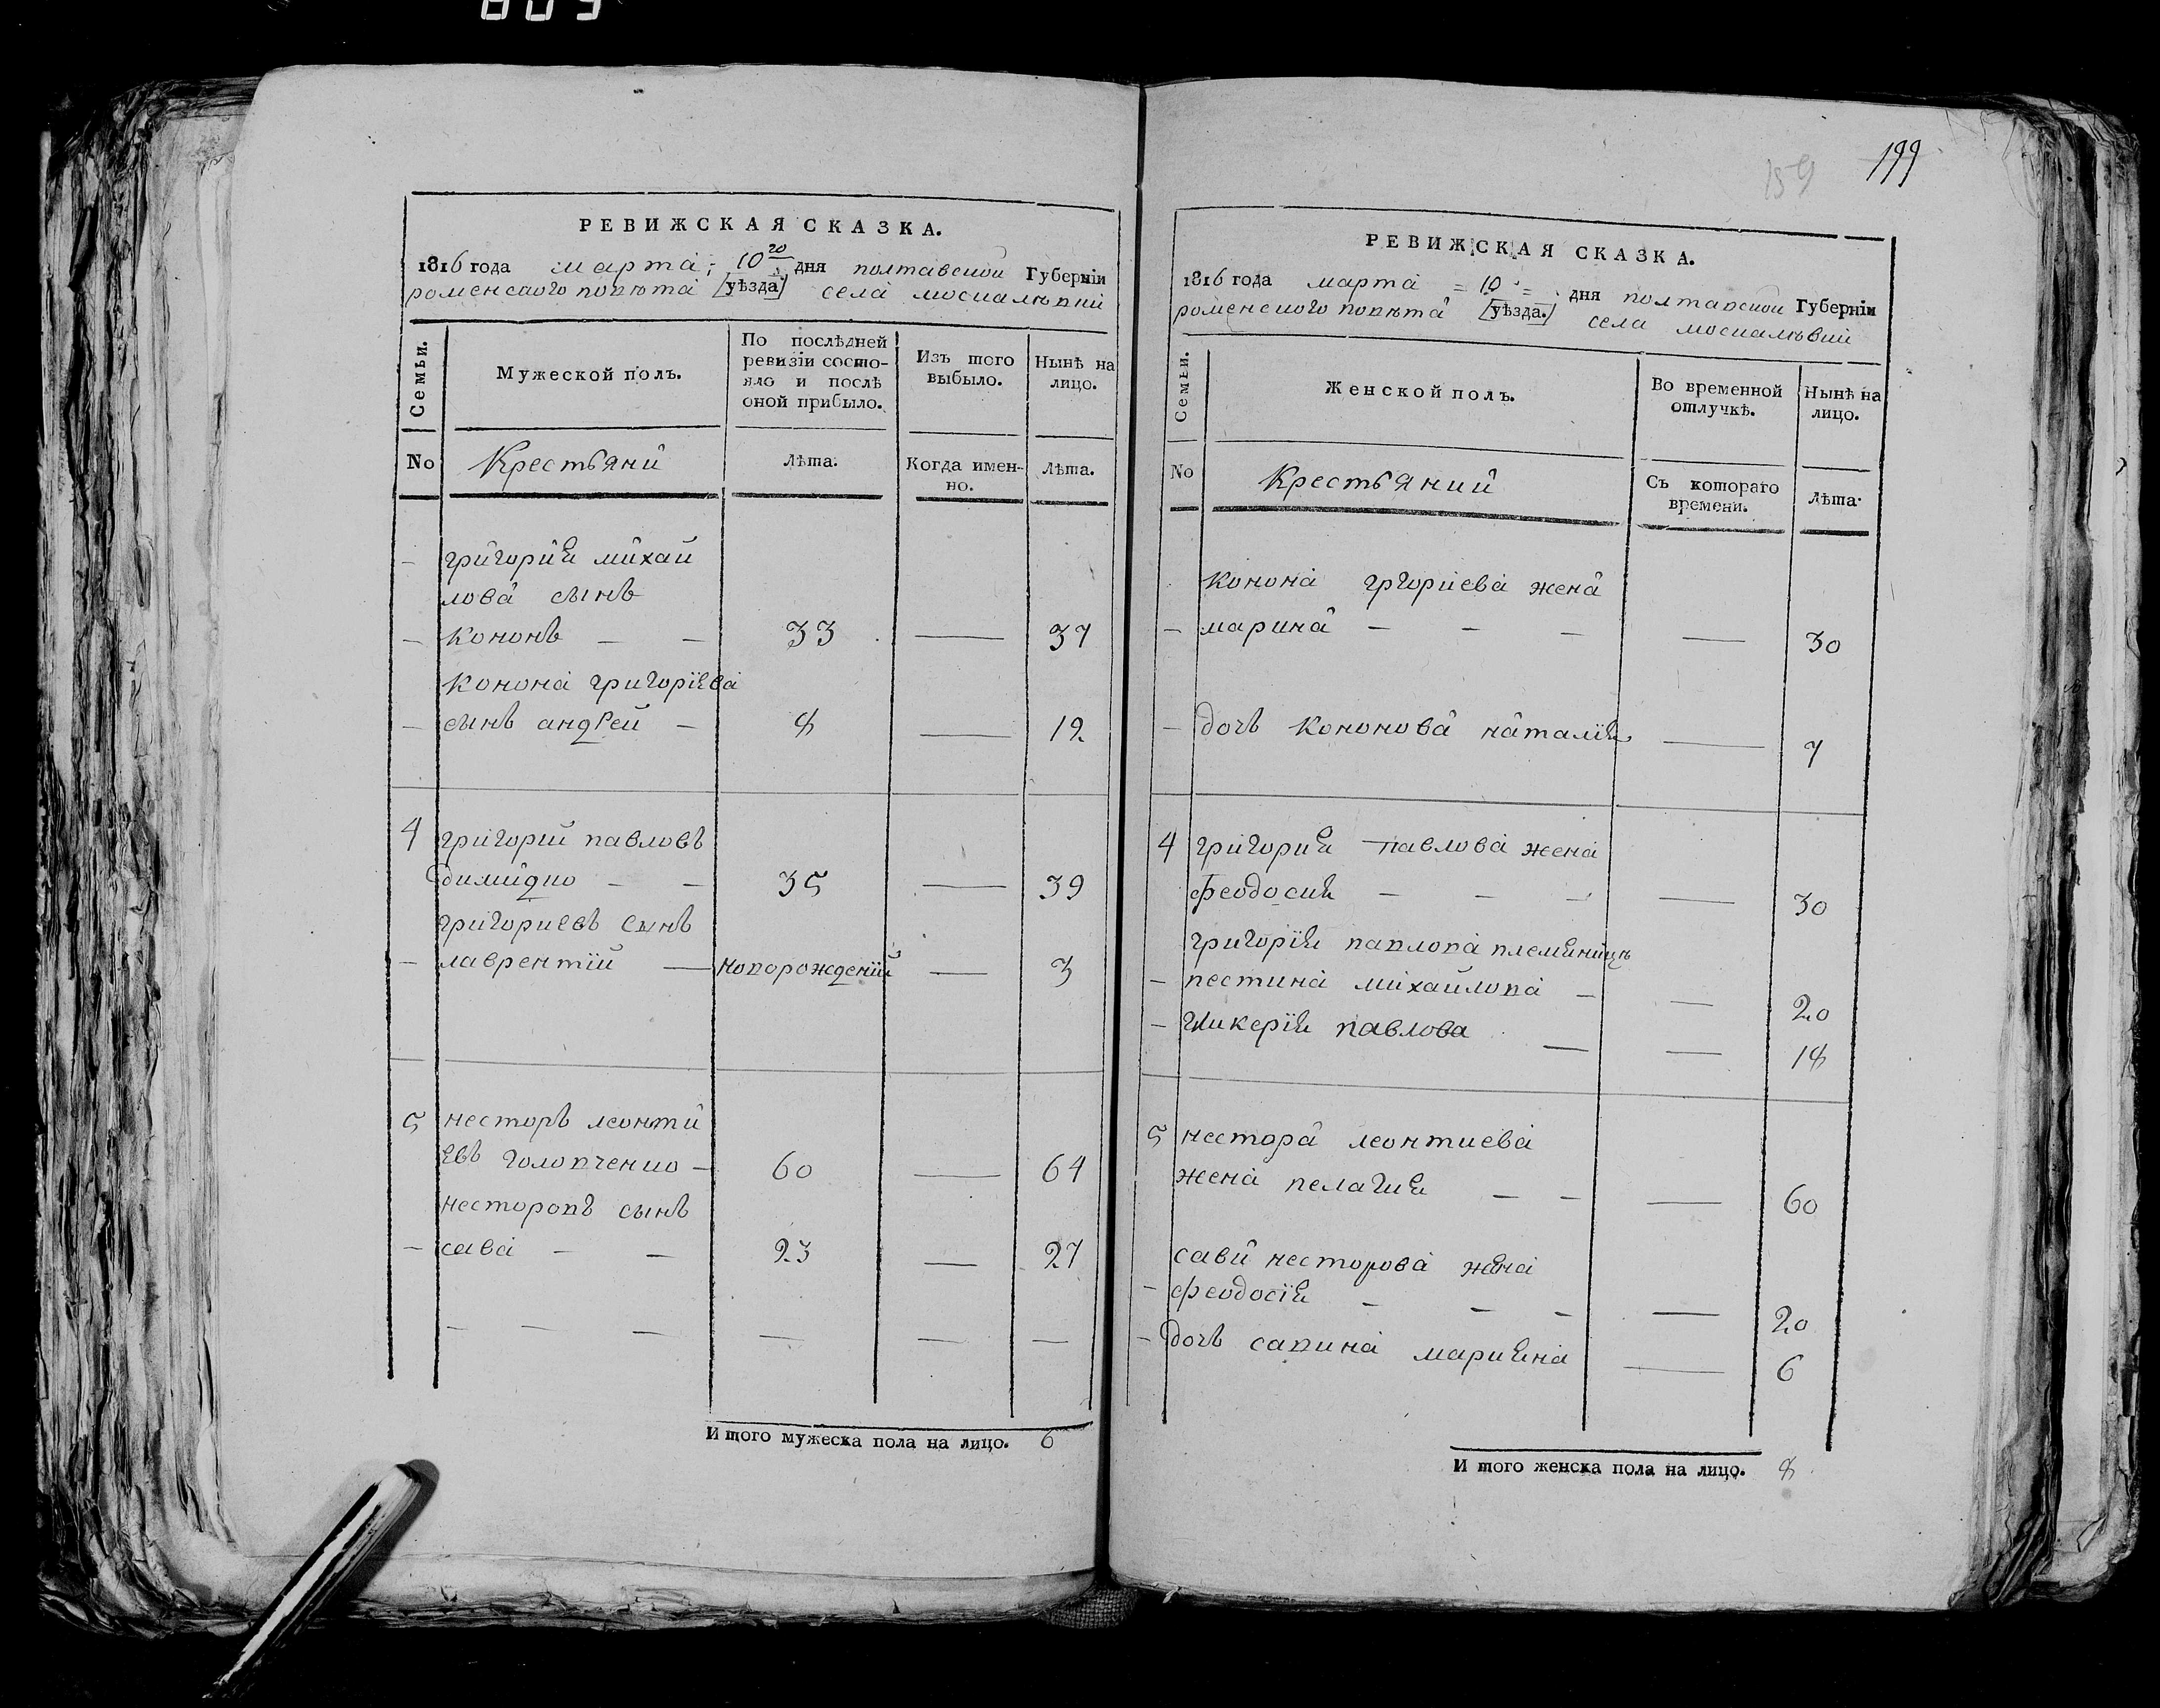 809
159 199
РЕВИЖСКАЯ СКАЗКА.
1816 года марта 10го дня полтавской Губерніи
роменского повѣта [уѣзда] села москалѣвки
Семьи.
Мужеской полъ.
По послѣдней
ревизіи состо-
яло и послѣ
оной прибыло.
Изъ того
выбыло.
Нынѣ на
лицо.
No Крестьяни лѣта. Когда имен-
но. лѣта.
– григория михай
лова сынъ
– кононъ – – 33 — 37
конона григорієва
– сынъ андрей – 8 — 12
4 григорий павловъ
димидко – – 35 — 39
григориевъ сынъ
– лаврентїй — новорождениїй — 3
5 несторъ леонти
евъ головченко – 60 — 64
несторовъ сынъ
– сава – – 23 — 27
– – – — — —
Итого мужеска пола на лицо. 6
РЕВИЖСКАЯ СКАЗКА.
1816 года марта = 10 = дня полтавской Губерніи
роменского повѣта [уѣзда.] села москалѣвки
Семьи.
Женской полъ.
Во временной
отлучкѣ.
Нынѣ на
лицо.
No Крестьяний Съ котораго
времени. лѣта
конона гргориева жена
– марина – – – — 30
– дочъ кононова наталия — 7
4 григория павлова жена
феодосия – – – — 30
григорїя павлова племяницъ
– пестина михайлова – — 20
– гликерїя павлова — — 18
5 нестора леонтиева
жена пелагия – – — 60
сави несторова жена
– феодосїя – – – — 20
– дочъ савина марияна — 6
Итого женска пола на лицо. 8